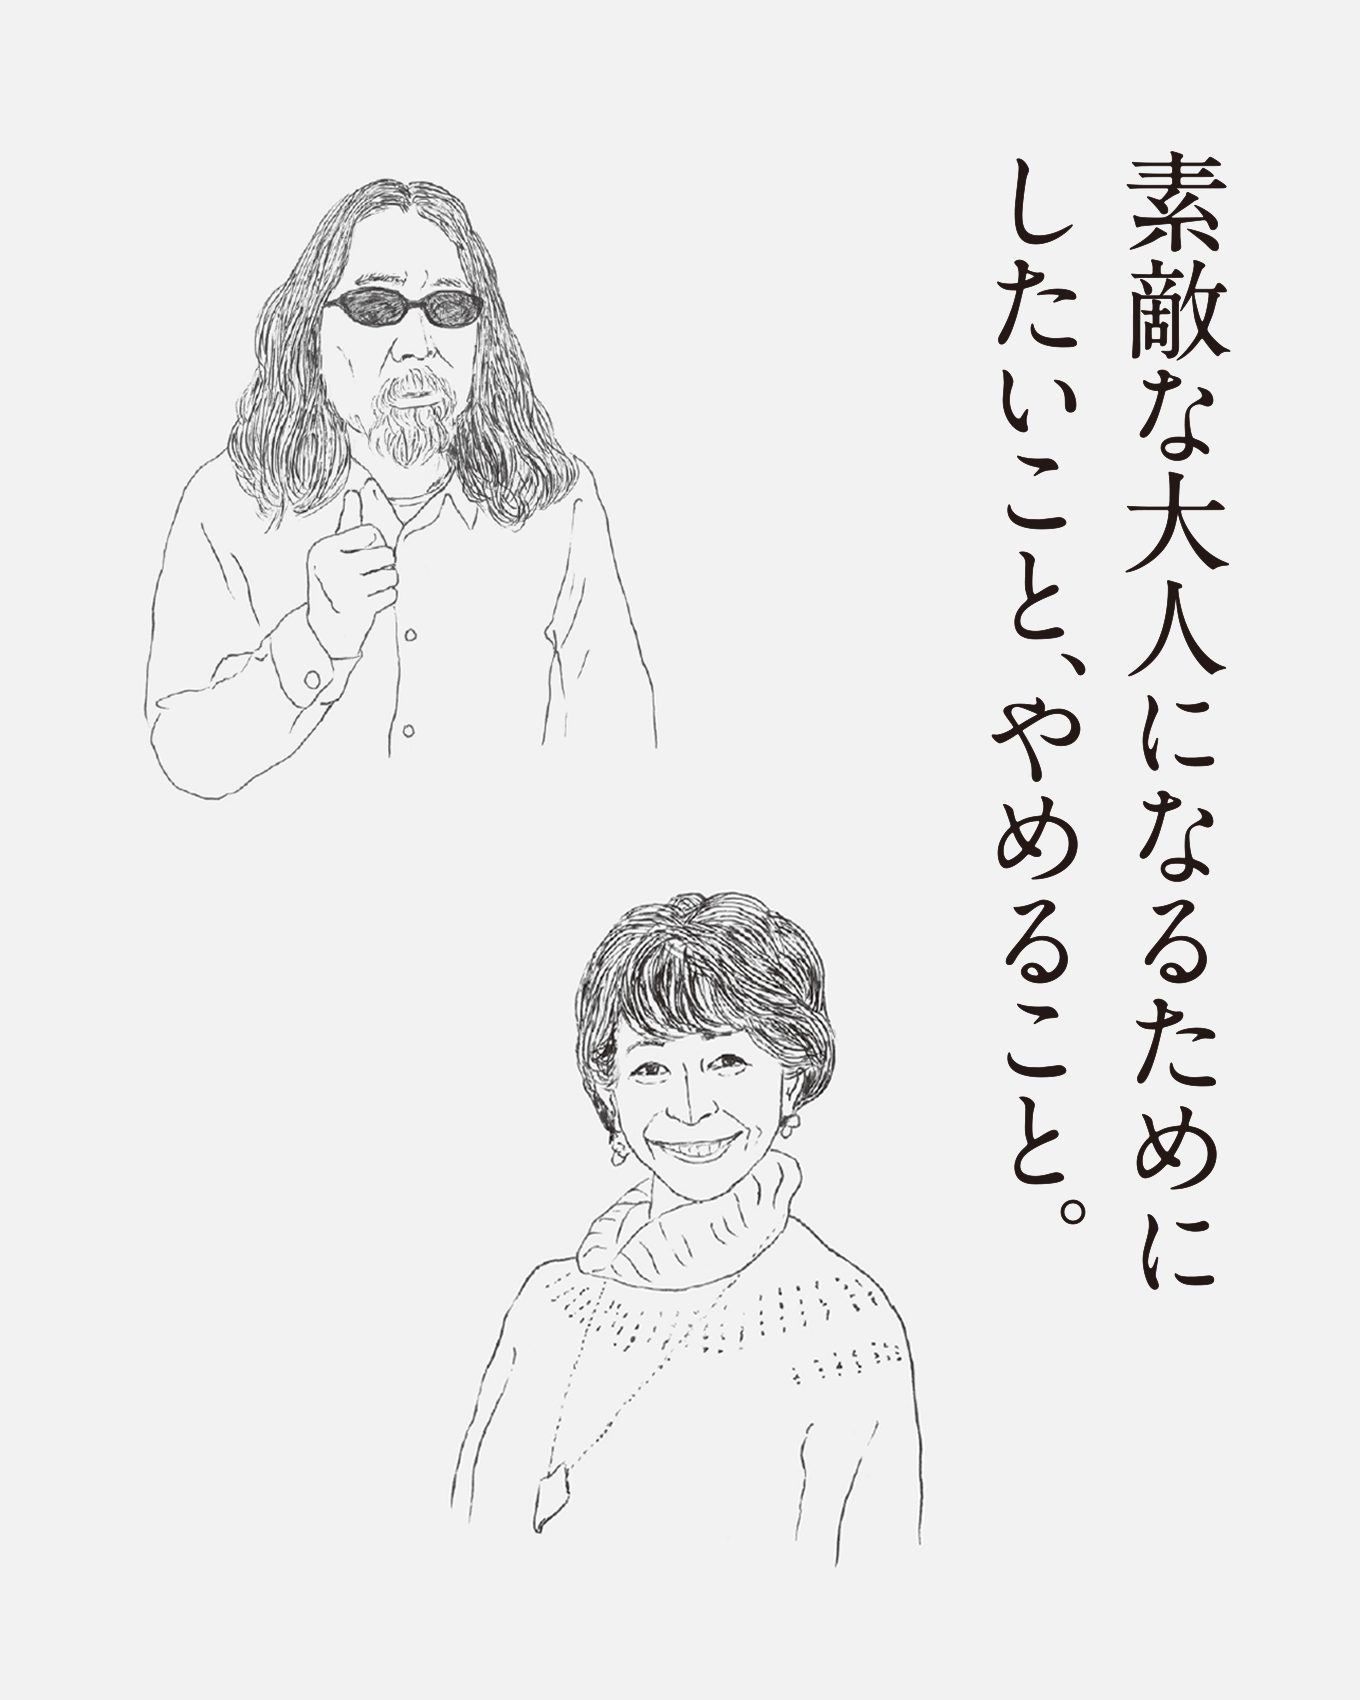 素敵な大人になるために
したいこと、やめること。